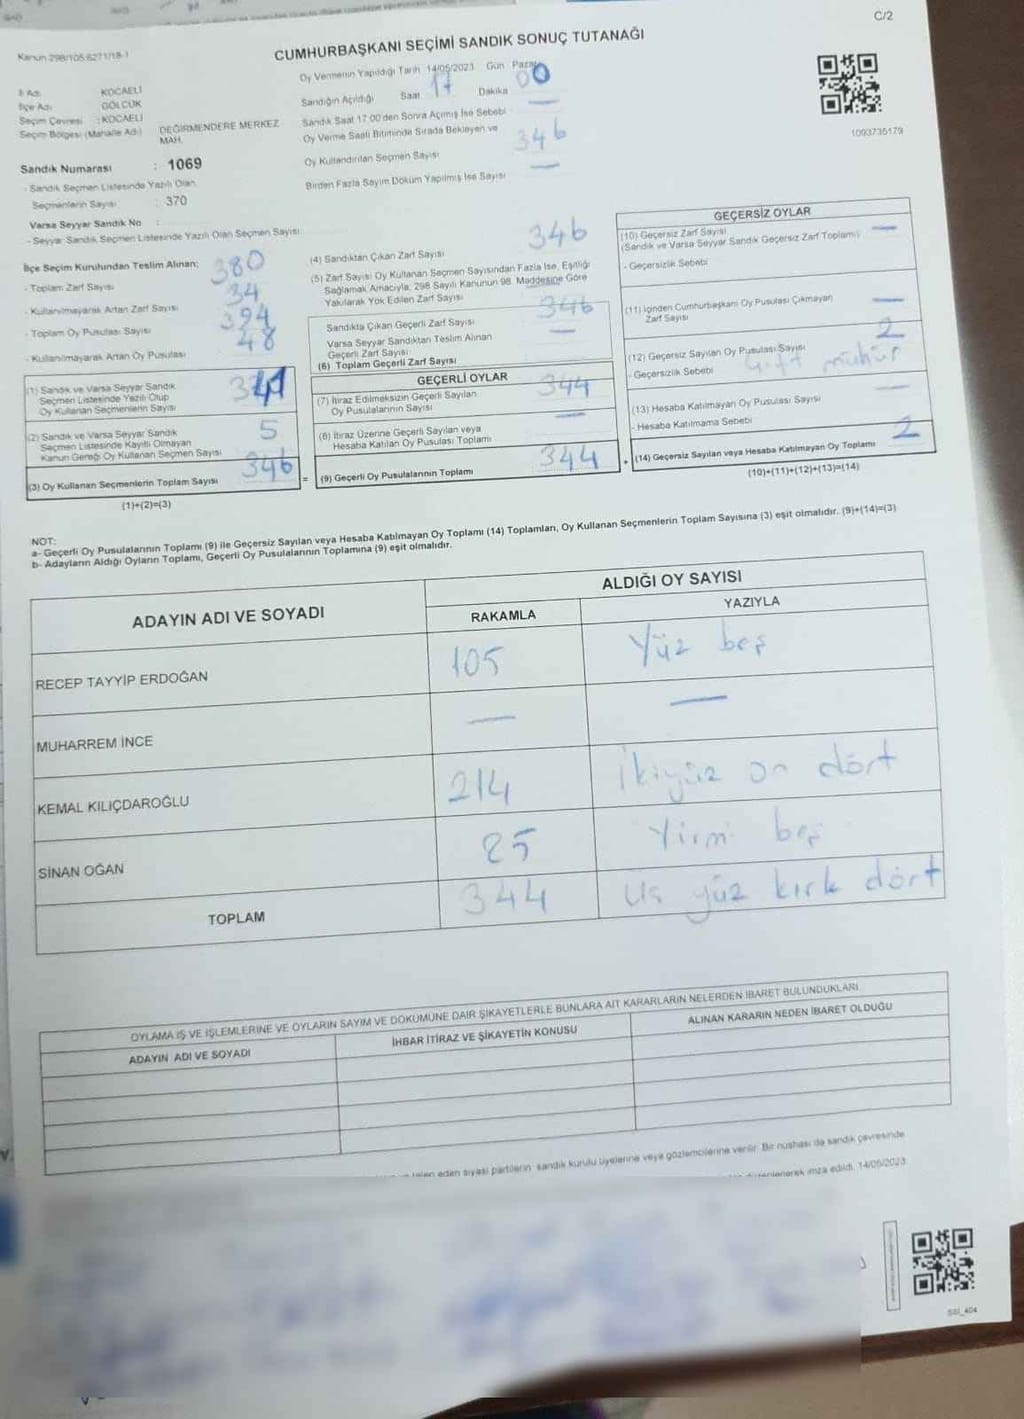 C/2
Kanun 298/105:6271/18-1
CUMHURBAŞKANI SEÇİMİ SANDIK SONUÇ TUTANAĞI
İl Adı : KOCAELİ
İlçe Adı : GÖLCÜK
Seçim Çevresi : KOCAELİ
Seçim Bölgesi (Mahalle Adı) : DEĞİRMENDERE MERKEZ MAH.
Sandık Numarası : 1069
- Sandık Seçmen Listesinde Yazılı Olan
Seçmenlerin Sayısı : 370
Varsa Seyyar Sandık No :
- Seyyar Sandık Seçmen Listesinde Yazılı Olan Seçmen Sayısı
Oy Vermenin Yapıldığı Tarih 14/05/2023 Gün Pazar
Sandığın Açıldığı Saat 17 Dakika 00
Sandık Saat 17:00'den Sonra Açılmış İse Sebebi —
Oy Verme Saati Bitiminde Sırada Bekleyen ve
Oy Kullandırılan Seçmen Sayısı 346
Birden Fazla Sayım Döküm Yapılmış İse Sayısı —
1093735179
İlçe Seçim Kurulundan Teslim Alınan;
- Toplam Zarf Sayısı 380
- Kullanılmayarak Artan Zarf Sayısı 34
- Toplam Oy Pusulası Sayısı 394
- Kullanılmayarak Artan Oy Pusulası 48
(1) Sandık ve Varsa Seyyar Sandık
Seçmen Listesinde Yazılı Olup
Oy Kullanan Seçmenlerin Sayısı 341
(2) Sandık ve Varsa Seyyar Sandık
Seçmen Listesinde Kayıtlı Olmayan
Kanun Gereği Oy Kullanan Seçmen Sayısı 5
(3) Oy Kullanan Seçmenlerin Toplam Sayısı 346
(1)+(2)=(3)
(4) Sandıktan Çıkan Zarf Sayısı 346
(5) Zarf Sayısı Oy Kullanan Seçmen Sayısından Fazla İse, Eşitliği
Sağlamak Amacıyla, 298 Sayılı Kanunun 98. Maddesine Göre
Yakılarak Yok Edilen Zarf Sayısı —
Sandıkta Çıkan Geçerli Zarf Sayısı 346
Varsa Seyyar Sandıktan Teslim Alınan
Geçerli Zarf Sayısı —
(6) Toplam Geçerli Zarf Sayısı
GEÇERLİ OYLAR
(7) İtiraz Edilmeksizin Geçerli Sayılan
Oy Pusulalarının Sayısı 344
(8) İtiraz Üzerine Geçerli Sayılan veya
Hesaba Katılan Oy Pusulası Toplamı —
= (9) Geçerli Oy Pusulalarının Toplamı 344 +
GEÇERSİZ OYLAR
(10) Geçersiz Zarf Sayısı —
(Sandık ve Varsa Seyyar Sandık Geçersiz Zarf Toplamı)
- Geçersizlik Sebebi
(11) İçinden Cumhurbaşkanı Oy Pusulası Çıkmayan
Zarf Sayısı —
(12) Geçersiz Sayılan Oy Pusulası Sayısı 2
- Geçersizlik Sebebi Çift mühür
(13) Hesaba Katılmayan Oy Pusulası Sayısı —
- Hesaba Katılmama Sebebi
(14) Geçersiz Sayılan veya Hesaba Katılmayan Oy Toplamı 2
(10)+(11)+(12)+(13)=(14)
NOT:
a- Geçerli Oy Pusulalarının Toplamı (9) ile Geçersiz Sayılan veya Hesaba Katılmayan Oy Toplamı (14) Toplamları, Oy Kullanan Seçmenlerin Toplam Sayısına (3) eşit olmalıdır. (9)+(14)=(3)
b- Adayların Aldığı Oyların Toplamı, Geçerli Oy Pusulalarının Toplamına (9) eşit olmalıdır.
ADAYIN ADI VE SOYADI
ALDIĞI OY SAYISI
RAKAMLA YAZIYLA
RECEP TAYYİP ERDOĞAN 105 Yüz beş
MUHARREM İNCE — —
KEMAL KILIÇDAROĞLU 214 İkiyüz on dört
SİNAN OĞAN 25 Yirmi beş
TOPLAM 344 Üs yüz kırk dört
OYLAMA İŞ VE İŞLEMLERİNE VE OYLARIN SAYIM VE DÖKÜMÜNE DAİR ŞİKAYETLERLE BUNLARA AİT KARARLARIN NELERDEN İBARET BULUNDUKLARI
ADAYIN ADI VE SOYADI İHBAR İTİRAZ VE ŞİKAYETİN KONUSU ALINAN KARARIN NEDEN İBARET OLDUĞU
eden siyasi partilerin sandık kurulu üyelerine veya gözlemcilerine verilir. Bir nüshası da sandık çevresinde
düzenlenerek imza edildi. 14/05/2023
SSI_404